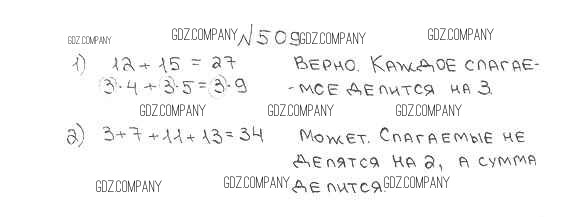 GDZ.COMPANY GDZ.COMPANY №509 GDZ.COMPANY GDZ.COMPANY
1) 12+15=27 ВЕРНО. КАЖДОЕ СЛАГАЕ-
3·4+3·5=3·9 -МОЕ ДЕЛИТСЯ НА 3.
GDZ.COMPANY GDZ.COMPANY GDZ.COMPANY
2) 3+7+11+13=34 МОЖЕТ. СЛАГАЕМЫЕ НЕ
ДЕЛЯТСЯ НА 2, А СУММА
GDZ.COMPANY GDZ.COMPANY ДЕЛИТСЯ. GDZ.COMPANY